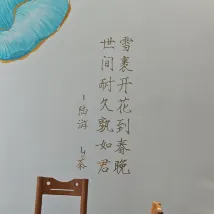 雪裹开花到春晚
世间耐久孰如君
- 陆游